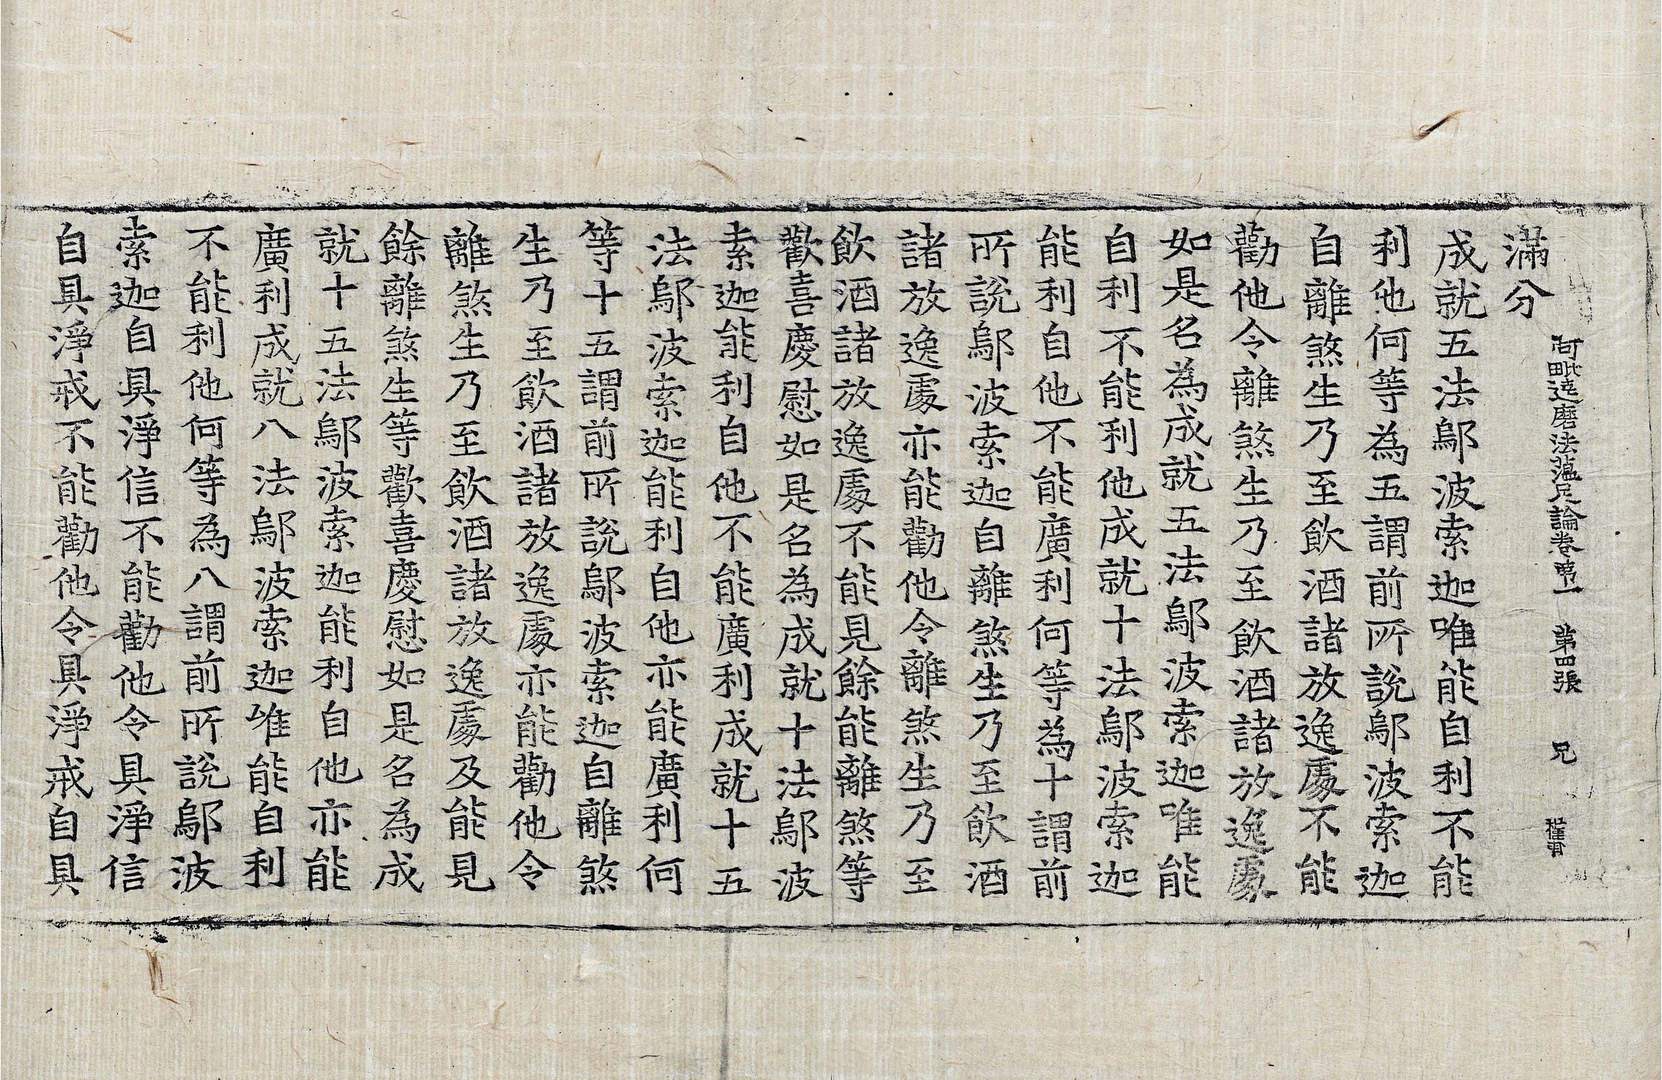 阿毗達磨法蘊足論卷第一 第四張 兄
滿分
成就五法鄔波索迦唯能自利不能
利他何等為五謂前所說鄔波索迦
自離煞生乃至飲酒諸放逸處不能
勸他令離煞生乃至飲酒諸放逸處
如是名為成就五法鄔波索迦唯能
自利不能利他成就十法鄔波索迦
能利自他不能廣利何等為十謂前
所說鄔波索迦自離煞生乃至飲酒
諸放逸處亦能勸他令離煞生乃至
飲酒諸放逸處不能見餘能離煞等
歡喜慶慰如是名為成就十法鄔波
索迦能利自他不能廣利成就十五
法鄔波索迦能利自他亦能廣利何
等十五謂前所說鄔波索迦自離煞
生乃至飲酒諸放逸處亦能勸他令
離煞生乃至飲酒諸放逸處及能見
餘離煞生等歡喜慶慰如是名為成
就十五法鄔波索迦能利自他亦能
廣利成就八法鄔波索迦唯能自利
不能利他何等為八謂前所說鄔波
索迦自具淨信不能勸他令具淨信
自具淨戒不能勸他令具淨戒自具